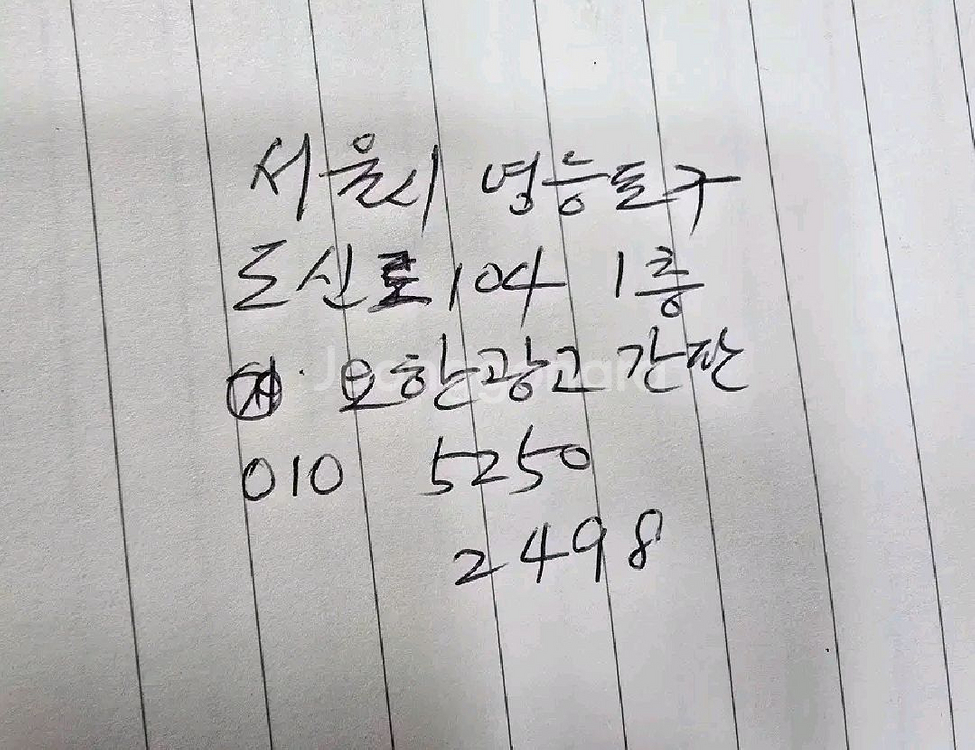 서울시 영등포구
도신로 104 1층
㈜ 요한광고 간판
010 5250
2498